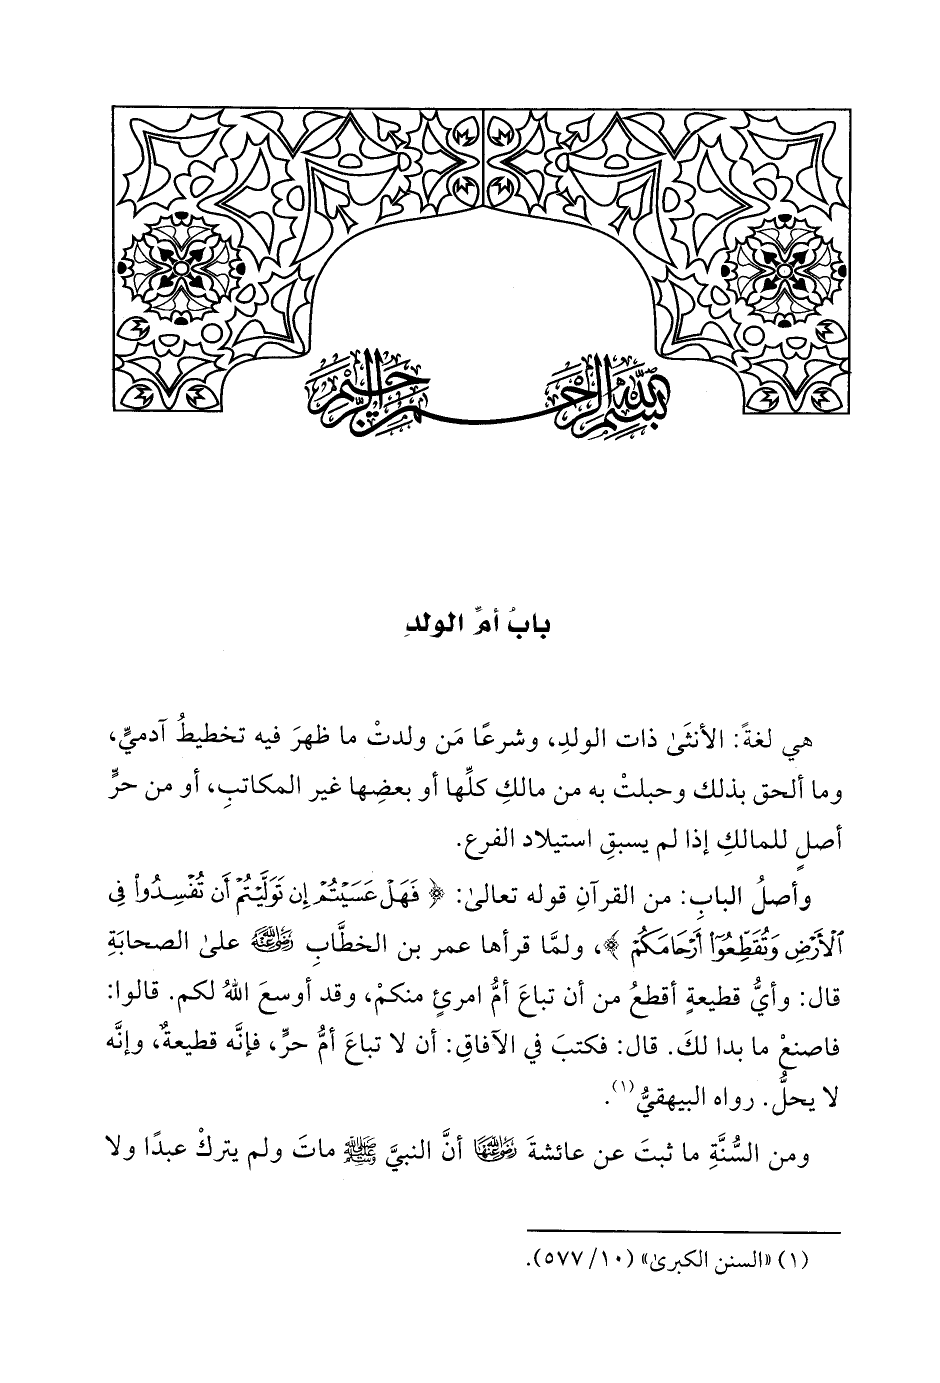 بسم الله الرحمن الرحيم
بابُ أمِّ الولدِ
هي لغةً: الأنثَىٰ ذات الولدِ، وشرعًا مَن ولدتْ ما ظهرَ فيه تخطيطُ آدميٍّ،
وما ألحق بذلك وحبلتْ به من مالكِ كلِّها أو بعضِها غير المكاتبِ، أو من حرٍّ
أصلٍ للمالكِ إذا لم يسبقِ استيلاد الفرع.
وأصلُ البابِ: من القرآنِ قوله تعالىٰ: ﴿ فَهَلْ عَسَيْتُمْ إِن تَوَلَّيْتُمْ أَن تُفْسِدُوا۟ فِى
ٱلْأَرْضِ وَتُقَطِّعُوٓا۟ أَرْحَامَكُمْ ﴾، ولمَّا قرأها عمر بن الخطَّابِ رَضِيَ اللَّهُ عَنْهُ علىٰ الصحابَةِ
قال: وأيُّ قطيعةٍ أقطعُ من أن تباعَ أمُّ امرئٍ منكمْ، وقد أوسعَ اللهُ لكم. قالوا:
فاصنعْ ما بدا لكَ. قال: فكتبَ في الآفاقِ: أن لا تباعَ أمُّ حرٍّ، فإنَّه قطيعةٌ، وإنَّه
لا يحلُّ. رواه البيهقيُّ(١).
ومن السُّنَّةِ ما ثبتَ عن عائشةَ رَضِيَ اللَّهُ عَنْهَا أنَّ النبيَّ ﷺ ماتَ ولم يتركْ عبدًا ولا
(١) «السنن الكبرىٰ» (١٠/ ٥٧٧).